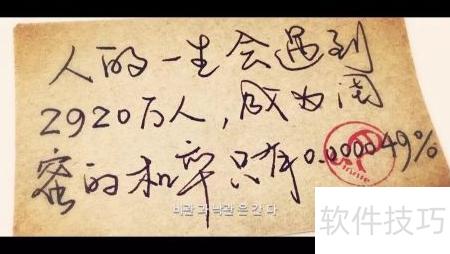 人的一生会遇到
2920万人,成为闺
蜜的机率只有0.000049%
비관과 낙관은 간다
软件技巧